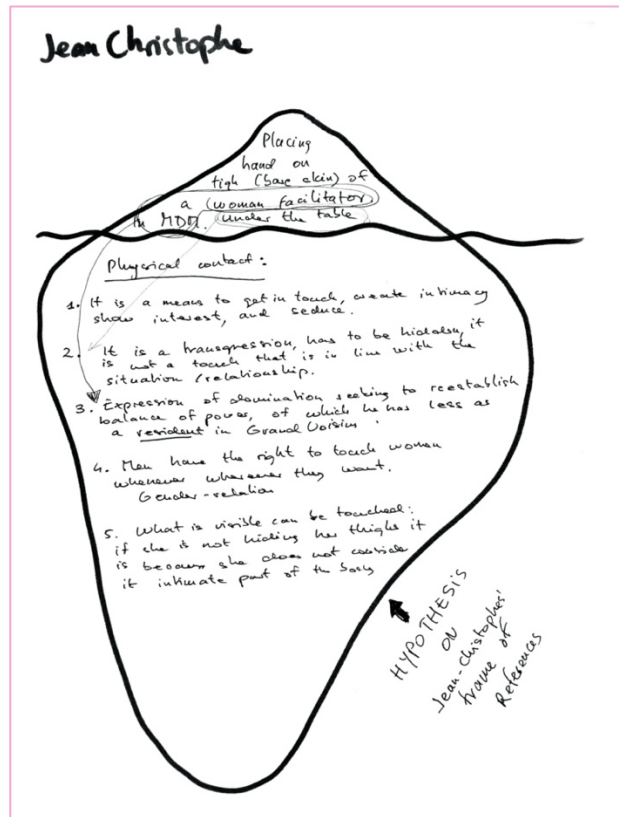 Jean Christophe
Placing
hand on
tigh (bare skin) of
a (woman facilitator)
In MDM. under the table
Physical contact:
1. It is a means to get in touch, create intimacy
show interest, and seduce.
2. It is a transgression, has to be hidden, it
is not a touch that is in line with the
situation/relationship.
3. Expression of domination seeking to reestablish
balance of power, of which he has less as
a resident in Grand Voisins.
4. Men have the right to touch woman
whenever wherever they want.
Gender-relation
5. What is visible can be touched:
if she is not hiding her thighs it
is because she does not consider
it intimate part of the body
HYPOTHESIS
ON
Jean-Christophes'
frame of
References